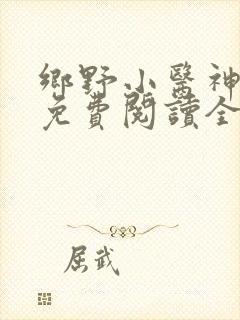 鄉野小醫神
免費閱讀全
屈武